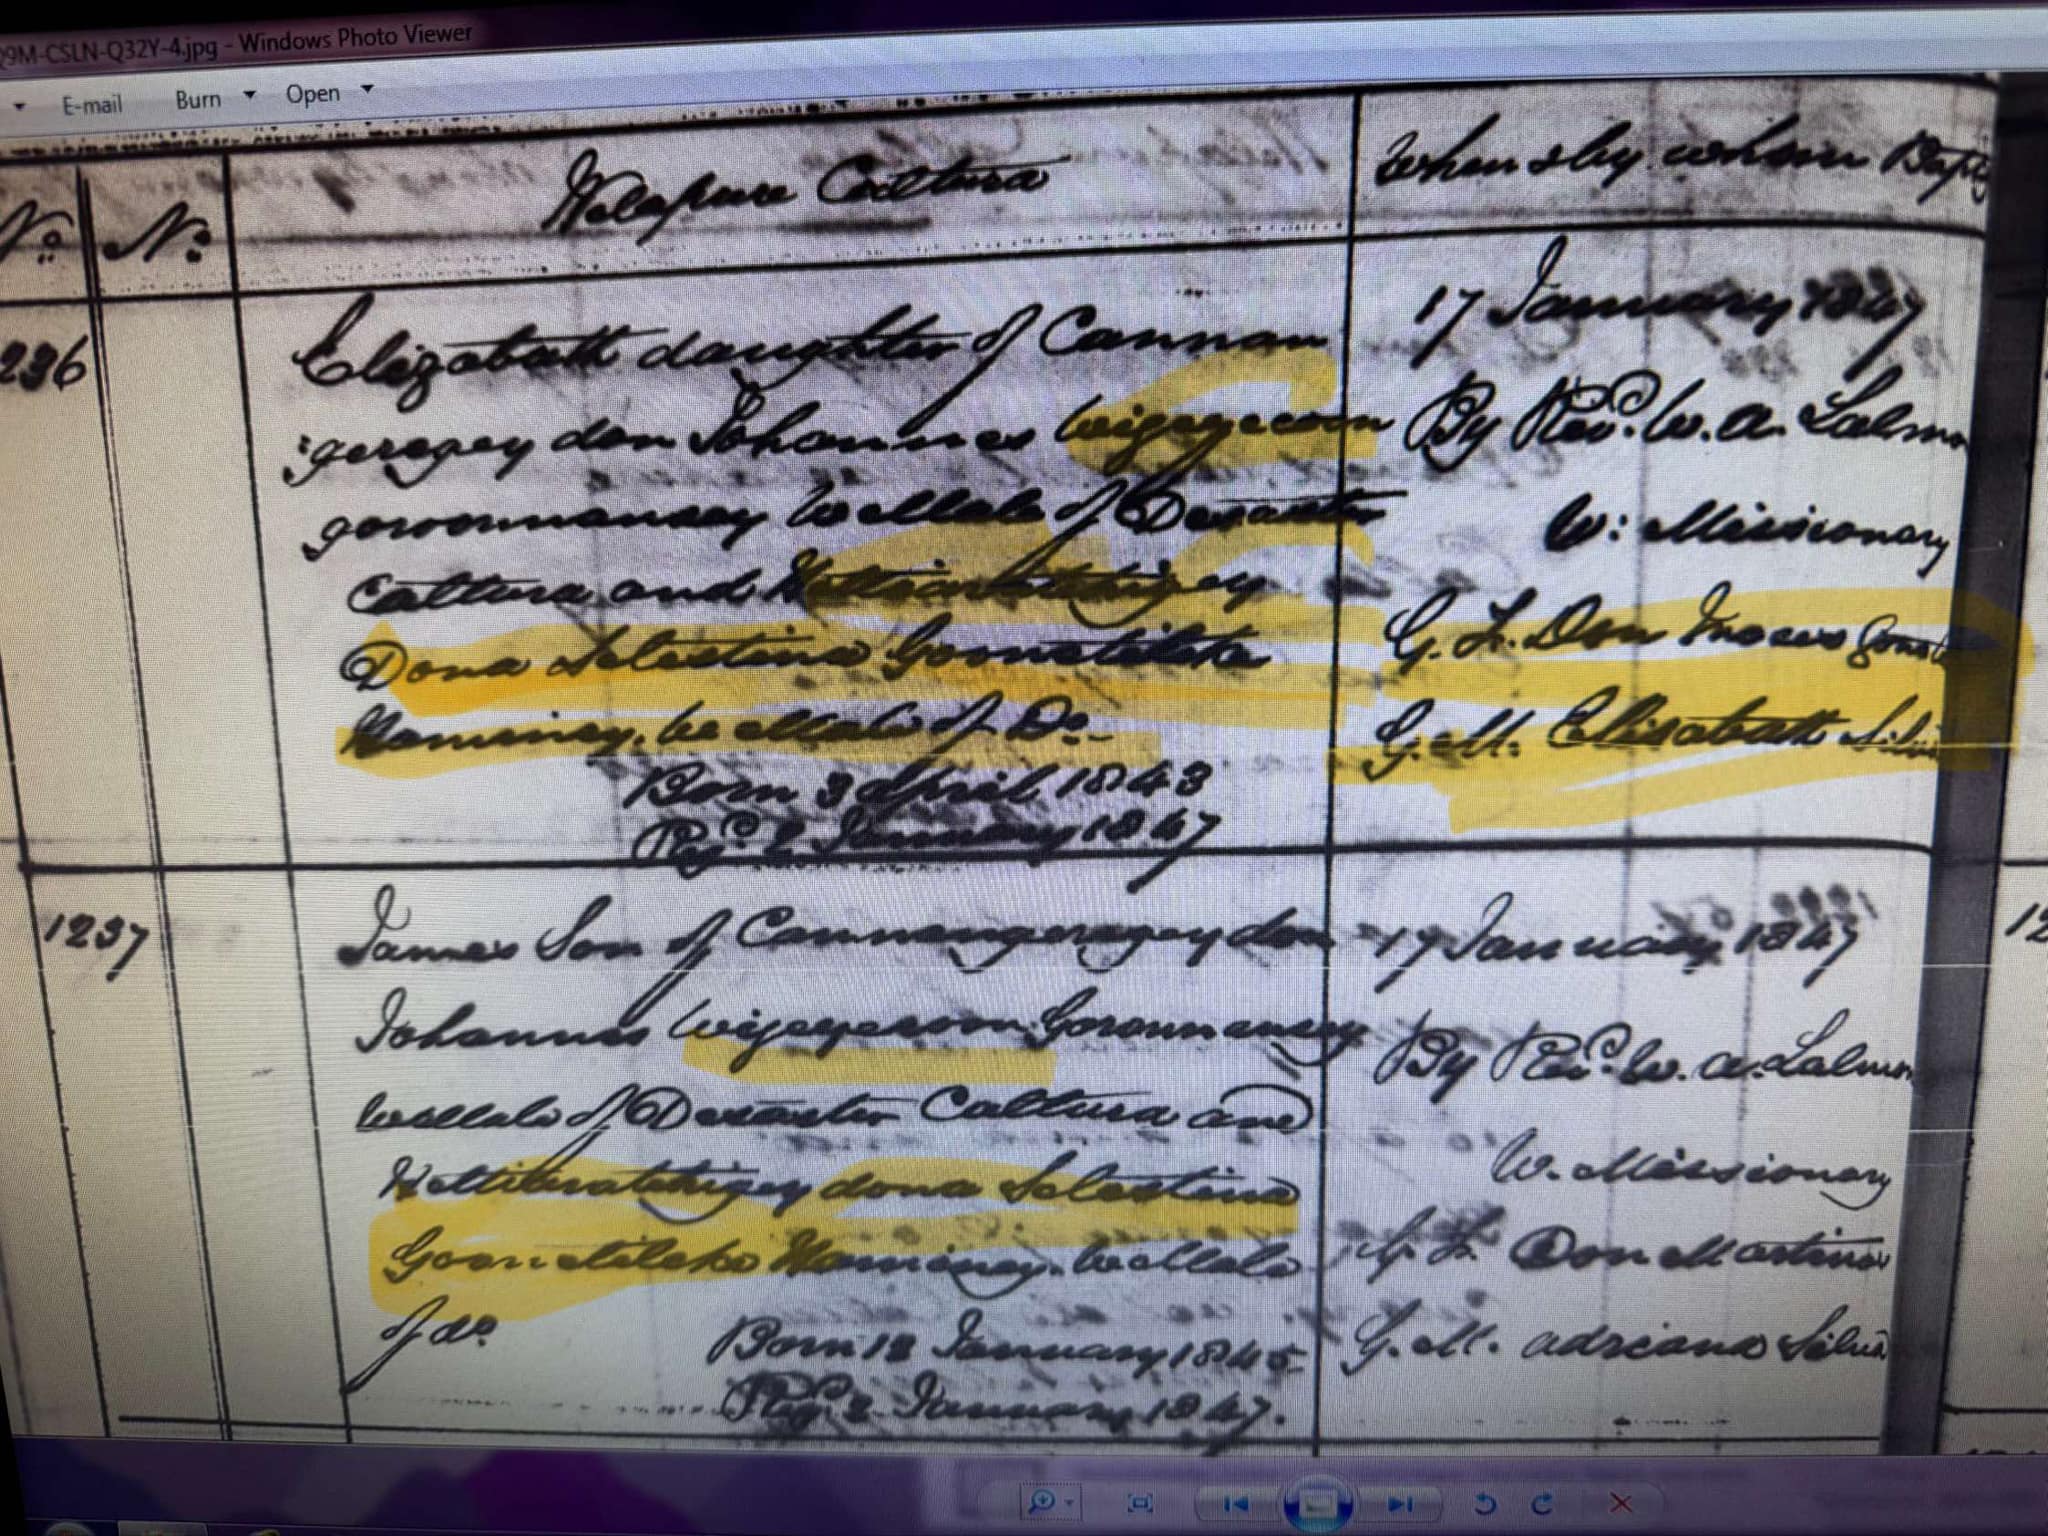 Q9M-CSLN-Q32Y-4.jpg - Windows Photo Viewer
E-mail Burn Open
No. No. Caltura When & by whom Bapti
236 Elizabeth daughter of Cannan
geregey don Johannes Wigeyecoon
goroonnansey Wellale of Desaster
Caltura and
Dona Selestina Goonetileke
Haminey. Wellale of Do.
Born 3 April 1843
Regd. 2 January 1847
17 January 1847
By Revd. W. A. Salmon
W. Missionary
G. F. Don
G. M. Elisabeth Silva
1237 James Son of Cannangeregey don
Johannes Wigeyecoon Goroonnansey
Wellale of Desaster Caltura and
Hettiaratchigey dona Selestina
Goonetileke Haminey. Wellale
of do.
Born 12 January 1845.
Regd. 2 January 1847.
17 January 1847
By Revd. W. A. Salmon
W. Missionary
G. F. Don Martinus
G. M. Adriana Silva
12